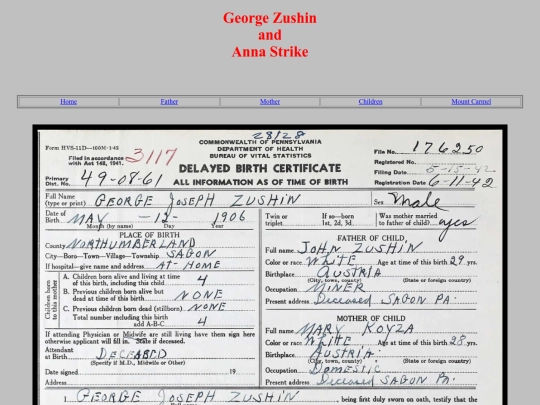 George Zushin
and
Anna Strike
Home Father Mother Children Mount Carmel
28/28
COMMONWEALTH OF PENNSYLVANIA
DEPARTMENT OF HEALTH
BUREAU OF VITAL STATISTICS
Form HVS-11D—100M-1-42
Filed in accordance
with Act 148, 1941.
3117
File No. 176250
Registered No.
DELAYED BIRTH CERTIFICATE
Filing Date 5-15-42
Primary
Dist. No. 49-08-61
ALL INFORMATION AS TIME OF BIRTH
Registration Date 6-11-42
Full Name
(type or print) GEORGE JOSEPH ZUSHIN
Sex Male
Date of
Birth MAY -12- 1906
Month (by name) Day Year
Twin or
triplet
If so—born
1st, 2d, 3d
Was mother married
to father of child? yes
PLACE OF BIRTH
County NORTHUMBERLAND
City—Boro—Town—Village—Township SAGON
If hospital—give name and address AT-HOME
Children born
to this mother
A. Children born alive and living at time
of this birth, including this child 4
B. Previous children born alive but
dead at time of this birth NONE
C. Previous children born dead (stillborn) NONE
Total number including this birth
add A-B-C 4
If attending Physician or Midwife are still living have them sign here
otherwise applicant will fill in. State if deceased.
Attendant
at Birth DECEASED
(Specify if M.D., Midwife or Other)
Date signed 19
Address
FATHER OF CHILD
Full name JOHN ZUSHIN
Color or race WHITE Age at time of this birth 29 yrs.
Birthplace AUSTRIA
(City, town, county) (State or foreign country)
Occupation MINER
Present address Deceased SAGON PA.
MOTHER OF CHILD
Full name MARY KOYZA
Color or race WHITE Age at time of this birth 28 yrs.
Birthplace AUSTRIA
(City, town, county) (State or foreign country)
Occupation Domestic
Present address Deceased SAGON PA.
I GEORGE JOSEPH ZUSHIN, being first duly sworn on oath, testify that the